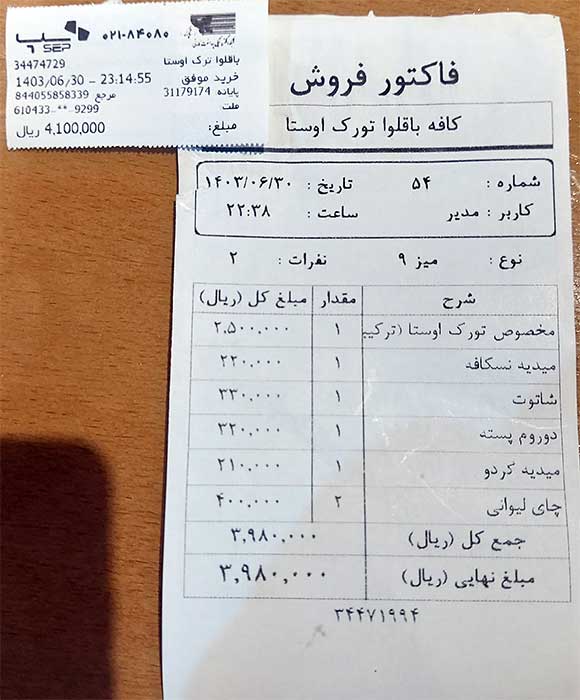 ۰۲۱-۸۴۰۸۰
SEP
باقلوا ترک اوستا
34474729
خرید موفق 1403/06/30 - 23:14:55
پایانه 31179174 مرجع 844055858339
ملت 610433-**-9299
مبلغ: 4,100,000 ریال
فاکتور فروش
کافه باقلوا تورک اوستا
شماره : ۵۴ تاریخ : ۱۴۰۳/۰۶/۳۰
کاربر : مدیر ساعت : ۲۲:۳۸
نوع : میز ۹ نفرات : ۲
شرح مقدار مبلغ کل (ریال)
مخصوص تورک اوستا (ترکیب ۱ ۲,۵۰۰,۰۰۰
میدیه نسکافه ۱ ۲۲۰,۰۰۰
شاتوت ۱ ۳۳۰,۰۰۰
دوروم پسته ۱ ۳۲۰,۰۰۰
میدیه گردو ۱ ۲۱۰,۰۰۰
چای لیوانی ۲ ۴۰۰,۰۰۰
جمع کل (ریال) ۳,۹۸۰,۰۰۰
مبلغ نهایی (ریال) ۳,۹۸۰,۰۰۰
۳۴۴۷۱۹۹۴